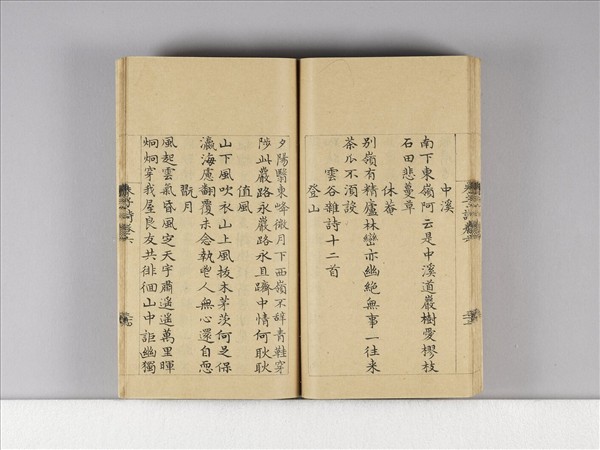 中溪
南下東嶺阿云是中溪道巖樹愛樛枝
石田悲蔓草
休菴
別嶺有精廬林巒亦幽絕無事一往来
茶瓜不須設
雲谷雜詩十二首
登山
夕陽翳東峰微月下西嶺不辞青鞋穿
陟此巖路永巖路永且躋中情何耿耿
值風
山下風吹衣山上風拔木茅茨何足保
瀛海慮翻覆未念執鬯人無心還自恧
翫月
風起雲氣昏風定天宇肅遙遙萬里暉
炯炯穿我屋良友共徘徊山中詎幽獨